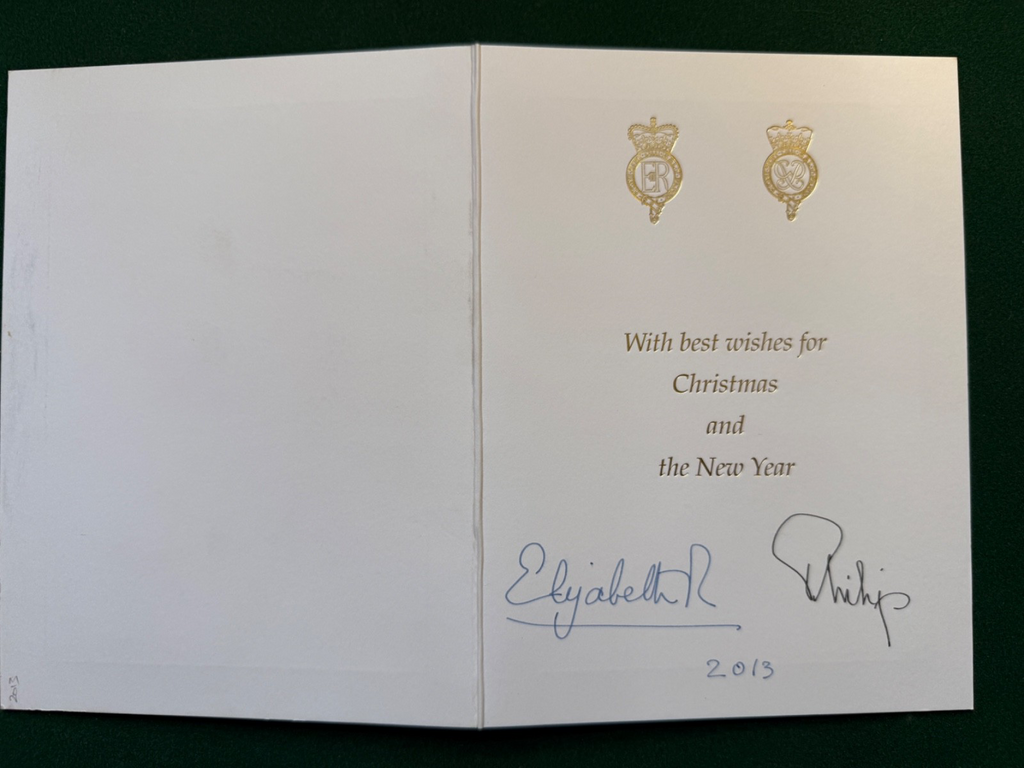 ER
With best wishes for
Christmas
and
the New Year
Elizabeth R
Philip
2013
2013